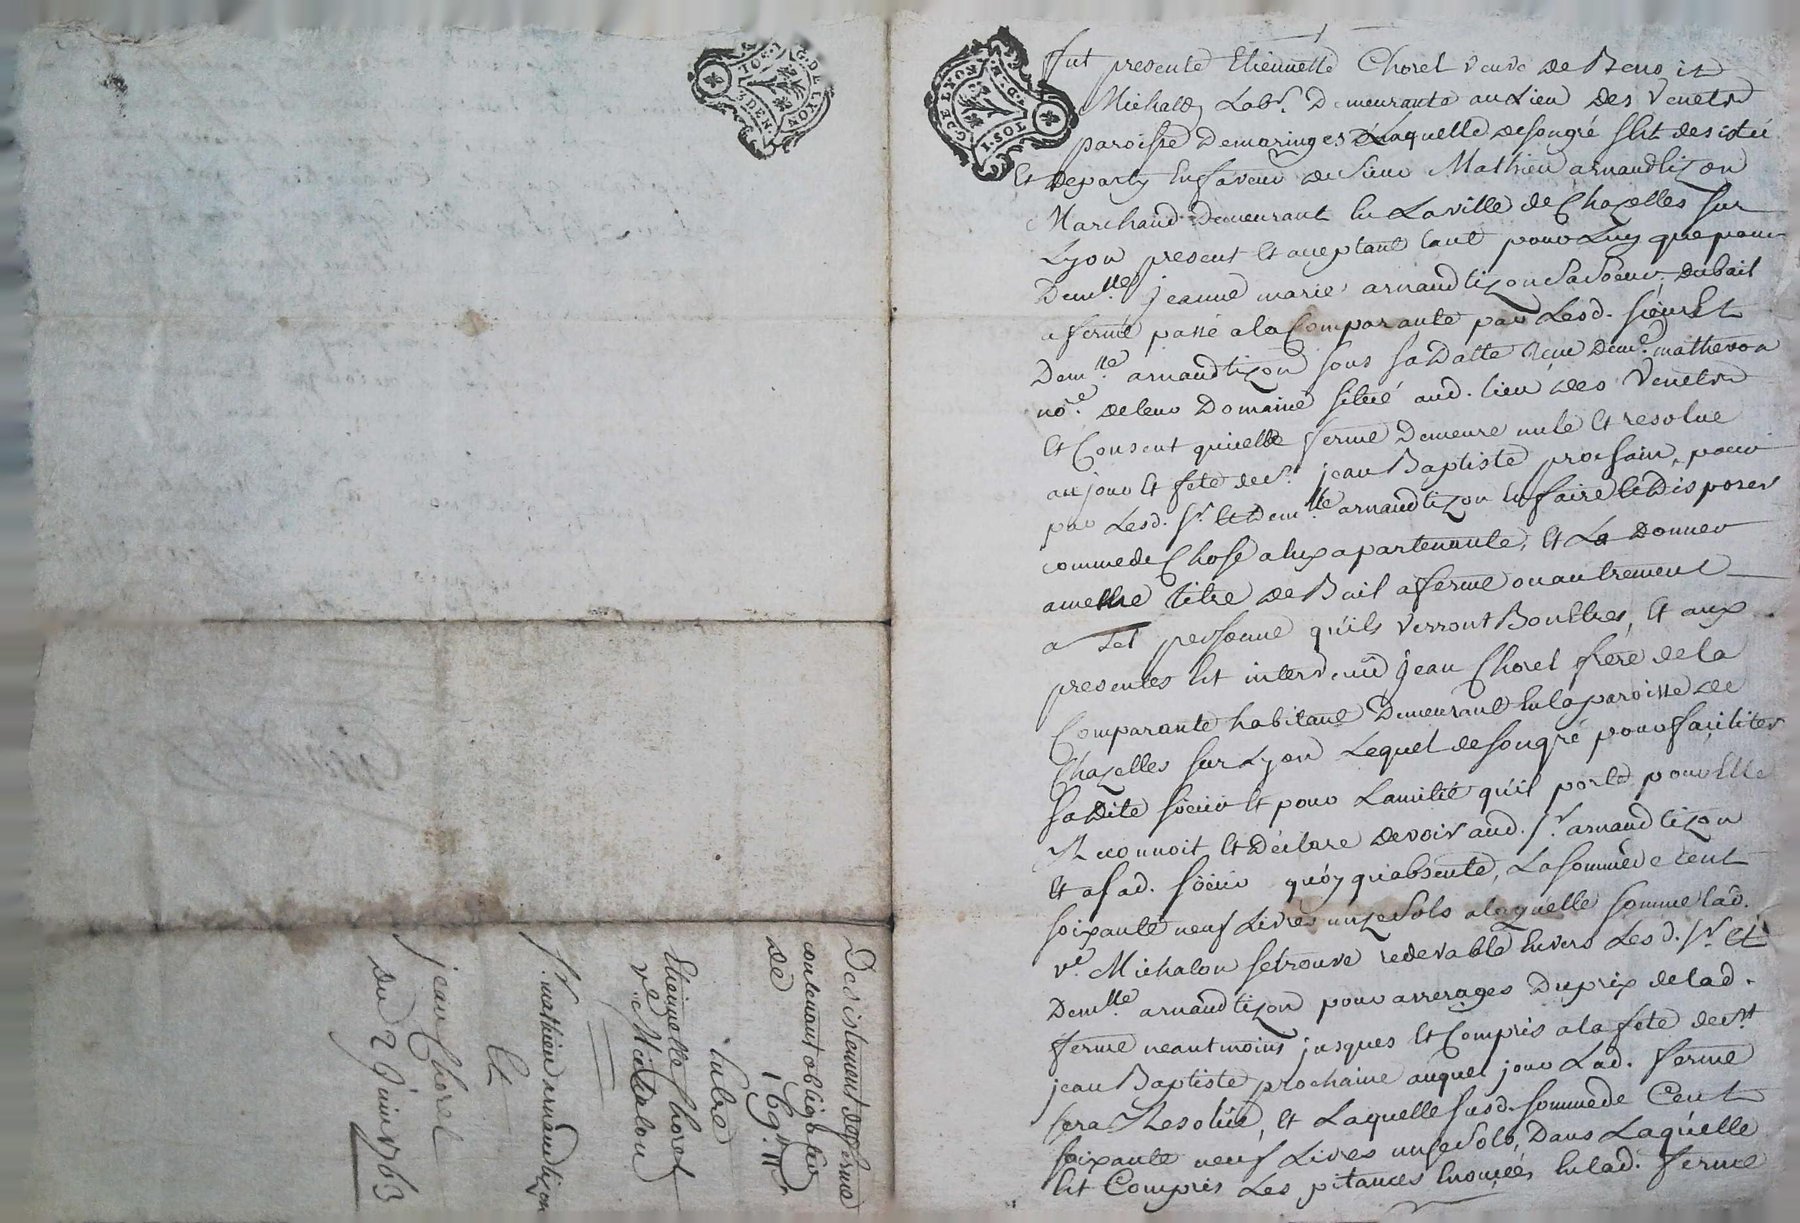 G. DE LYON
3 DEN.
G. DE LYON
1. SOL
fut presente Etiennette Chorel veuve de Benoit
Michalon Labr. Demeurante au Lieu Des Venets
paroisse Demaringes Laquelle desongré sest desistée
Et Departy Enfaveur de sieur Mathieu arnaudtizon
Marchand Demeurant En Laville de Chazelles sur
Lyon present Et aceptant tant pour Luy que pour
Demlle jeanne marie arnaudtizon sa soeur, du bail
a fermé passé a la Comparante par Lesd. sieur Et
Demlle arnaudtizon sous sa Datte Recu De me. matheron
nore. de leur Domaine situé aud. lieu des Venets
Et Consent qu'icelle ferme Demeure nule Et resolue
au jour Et fete de st. jean Baptiste prochain, pour
par Lesd. sr. Et Demlle arnaudtizon En faire Et Disposer
comme de Chose a Eux apartenante, Et La Donner
a titre de Bail a ferme ou autrement
a tel personne qu'ils verront Bon Etres, Et aux
presentes Est intervenu jean Chorel frere de la
Comparante habitant Demeurant En la paroisse de
Chazelles sur Lyon Lequel de songré pour faciliter
sa Dite soeur Et pour Lamitié qu'il porte pour Elle
Reconnoit Et Declare devoir aud. sr. arnaudtizon
Et a sad. soeur quoy qu'absente, La somme de cent
soixante neuf Livres unze sols a laquelle somme lad.
ve. Michalon se trouve redevable Envers Lesd. sr. Et
Demlle arnaudtizon pour arrerages Du prix de lad.
ferme neantmoins jusques Et Compris a la fete de st
jean Baptiste prochaine auquel jour Lad. ferme
sera Resolue, Et Laquelle susd. somme de Cent
soixante neuf Livres unze sols, Dans Laquelle
Est Compris Les pitances Enoncées En lad. ferme
Desistement de ferme
contenant obligation
de 169 lt. 11 s.
Entre
Etiennette Chorel
ve. Michalon
sr. mathieu arnaudtizon
Et
jean Chorel
du 2 juin 1763